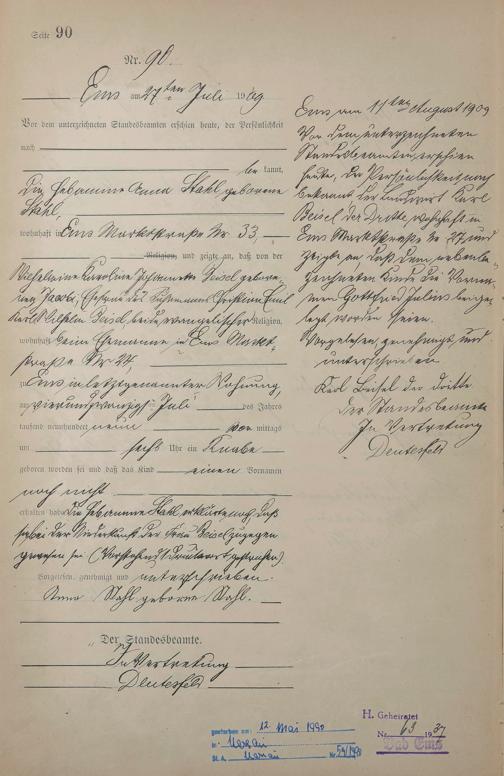 Seite 90
Nr. 90.
Ems am 27ten Juli 1909
Vor dem unterzeichneten Standesbeamten erschien heute, der Persönlichkeit
nach
be kannt,
die Hebamme Anna Stahl geborene
Stahl,
wohnhaft in Ems Marktstraße Nr. 33,
Religion, und zeigte an, daß von der
Wilhelmine Karoline Beisel gebore-
nen Jacobi, Ehefrau des Christian Emil
Karl Wilhelm Beisel, beide evangelischer Religion,
wohnhaft beim Ehemanne in Ems Markt-
straße Nr 27,
zu Ems in letztgenannter Wohnung,
am vierundzwanzigsten Juli des Jahres
tausend neunhundert neun vor mittags
um sechs Uhr ein Knabe
geboren worden sei und daß das Kind einen Vornamen
noch nicht
erhalten habe. Die Hebamme Stahl erklärte noch, daß
sie bei der Niederkunft der Frau Beisel zugegen
gewesen sei. (Vorstehend 1 Druckwort gestrichen).
Vorgelesen, genehmigt und unterschrieben.
Anna Stahl geborne Stahl.
Der Standesbeamte.
In Vertretung
Deutesfeld
Ems am 11ten August 1909
Vor dem unterzeichneten
Standesbeamten erschien
heute, der Persönlichkeit nach
bekannt der Landwirt Karl
Beisel der Dritte, wohnhaft in
Ems Marktstraße Nr 27 und
zeigte an daß dem nebenbe-
zeichneten Kinde die Vorna-
men Gottfried Julius beige-
legt worden seien.
Vorgelesen, genehmigt und
unterschrieben
Karl Beisel der dritte
Der Standesbeamte
In Vertretung
Deutesfeld
gestorben am: 12. Mai 1990
in: Nassau
St. A. Nassau Nr. 54/1990
H. Geheiratet
Nr. 63 1937
Bad Ems